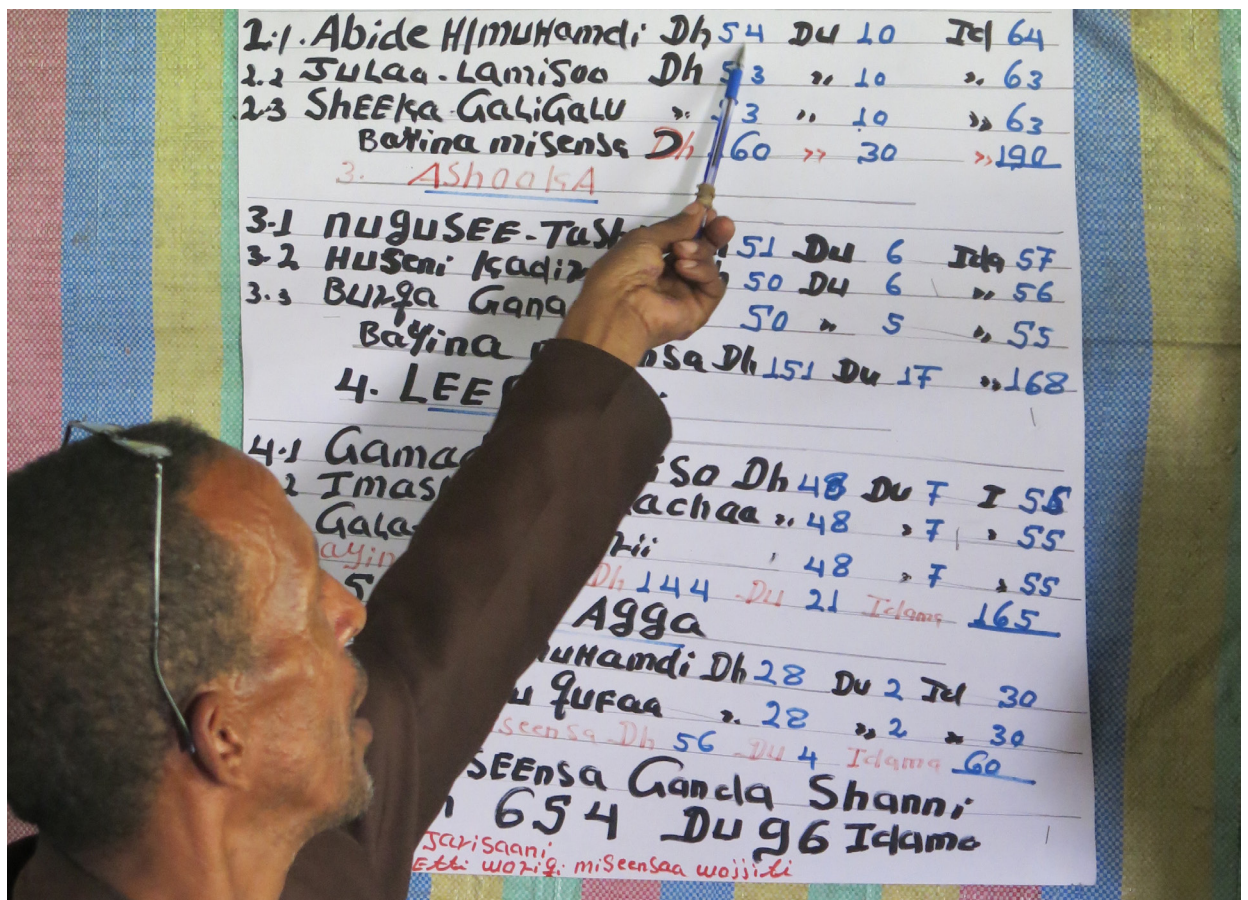 2.1. Abide H/muHamdi Dh 54 Du 10 Id 64
2.2 JuLaa-Lamisoo Dh 53 ,, 10 ,, 63
2.3 SHEEKa GaLiGaLu ,, 3 ,, 10 ,, 63
Bayina misensa Dh 160 ,, 30 ,, 190
3. ASHOOKA
3.1 nuguSEE-TaSh 51 Du 6 Ida 57
3.2 HuSeni Kadir 50 Du 6 ,, 56
3.3 Burqa Gana 50 ,, 5 ,, 55
Bayina nsa Dh 151 Du 17 ,, 168
4. LEE
4.1 Gamad iSo Dh 48 Du 7 I 55
2 Imas achaa ,, 48 ,, 7 ,, 55
Gala rii 48 ,, 7 ,, 55
ayin Dh 144 Du 21 Idama 165
5 Agga
muHamdi Dh 28 Du 2 Id 30
u qufaa ,, 28 ,, 2 ,, 30
iseensa Dh 56 Du 4 Idama 60
SEEnsa Ganda Shanni
654 Du 96 Idama
Jarisaani
Etti woriqi miseensaa wojjiti